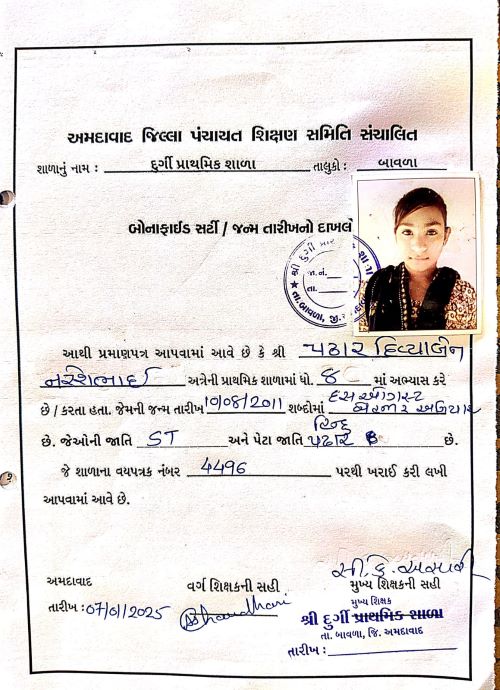 અમદાવાદ જિલ્લા પંચાયત શિક્ષણ સમિતિ સંચાલિત
શાળાનું નામ : દુર્ગી પ્રાથમિક શાળા તાલુકો : બાવળા
બોનાફાઈડ સર્ટી / જન્મ તારીખનો દાખલો
શ્રી દુર્ગી પ્રાથ શાળા
જા.નં.
તા.
તા.બાવળા, જી.
આથી પ્રમાણપત્ર આપવામાં આવે છે કે શ્રી પઢાર દિવ્યાબેન
નરશીભાઈ અત્રેની પ્રાથમિક શાળામાં ધો. 8 માં અભ્યાસ કરે
છે / કરતા હતા. જેમની જન્મ તારીખ 10/08/2011 શબ્દોમાં દસ ઓગસ્ટ બેહજાર અગિયાર
છે. જેઓની જાતિ ST અને પેટા જાતિ હિન્દુ પઢાર છે.
જે શાળાના વયપત્રક નંબર 4496 પરથી ખરાઈ કરી લખી
આપવામાં આવે છે.
અમદાવાદ
તારીખ : 07/01/2025
વર્ગ શિક્ષકની સહી
મુખ્ય શિક્ષકની સહી
મુખ્ય શિક્ષક
શ્રી દુર્ગી પ્રાથમિક શાળા
તા. બાવળા, જિ. અમદાવાદ
તારીખ :